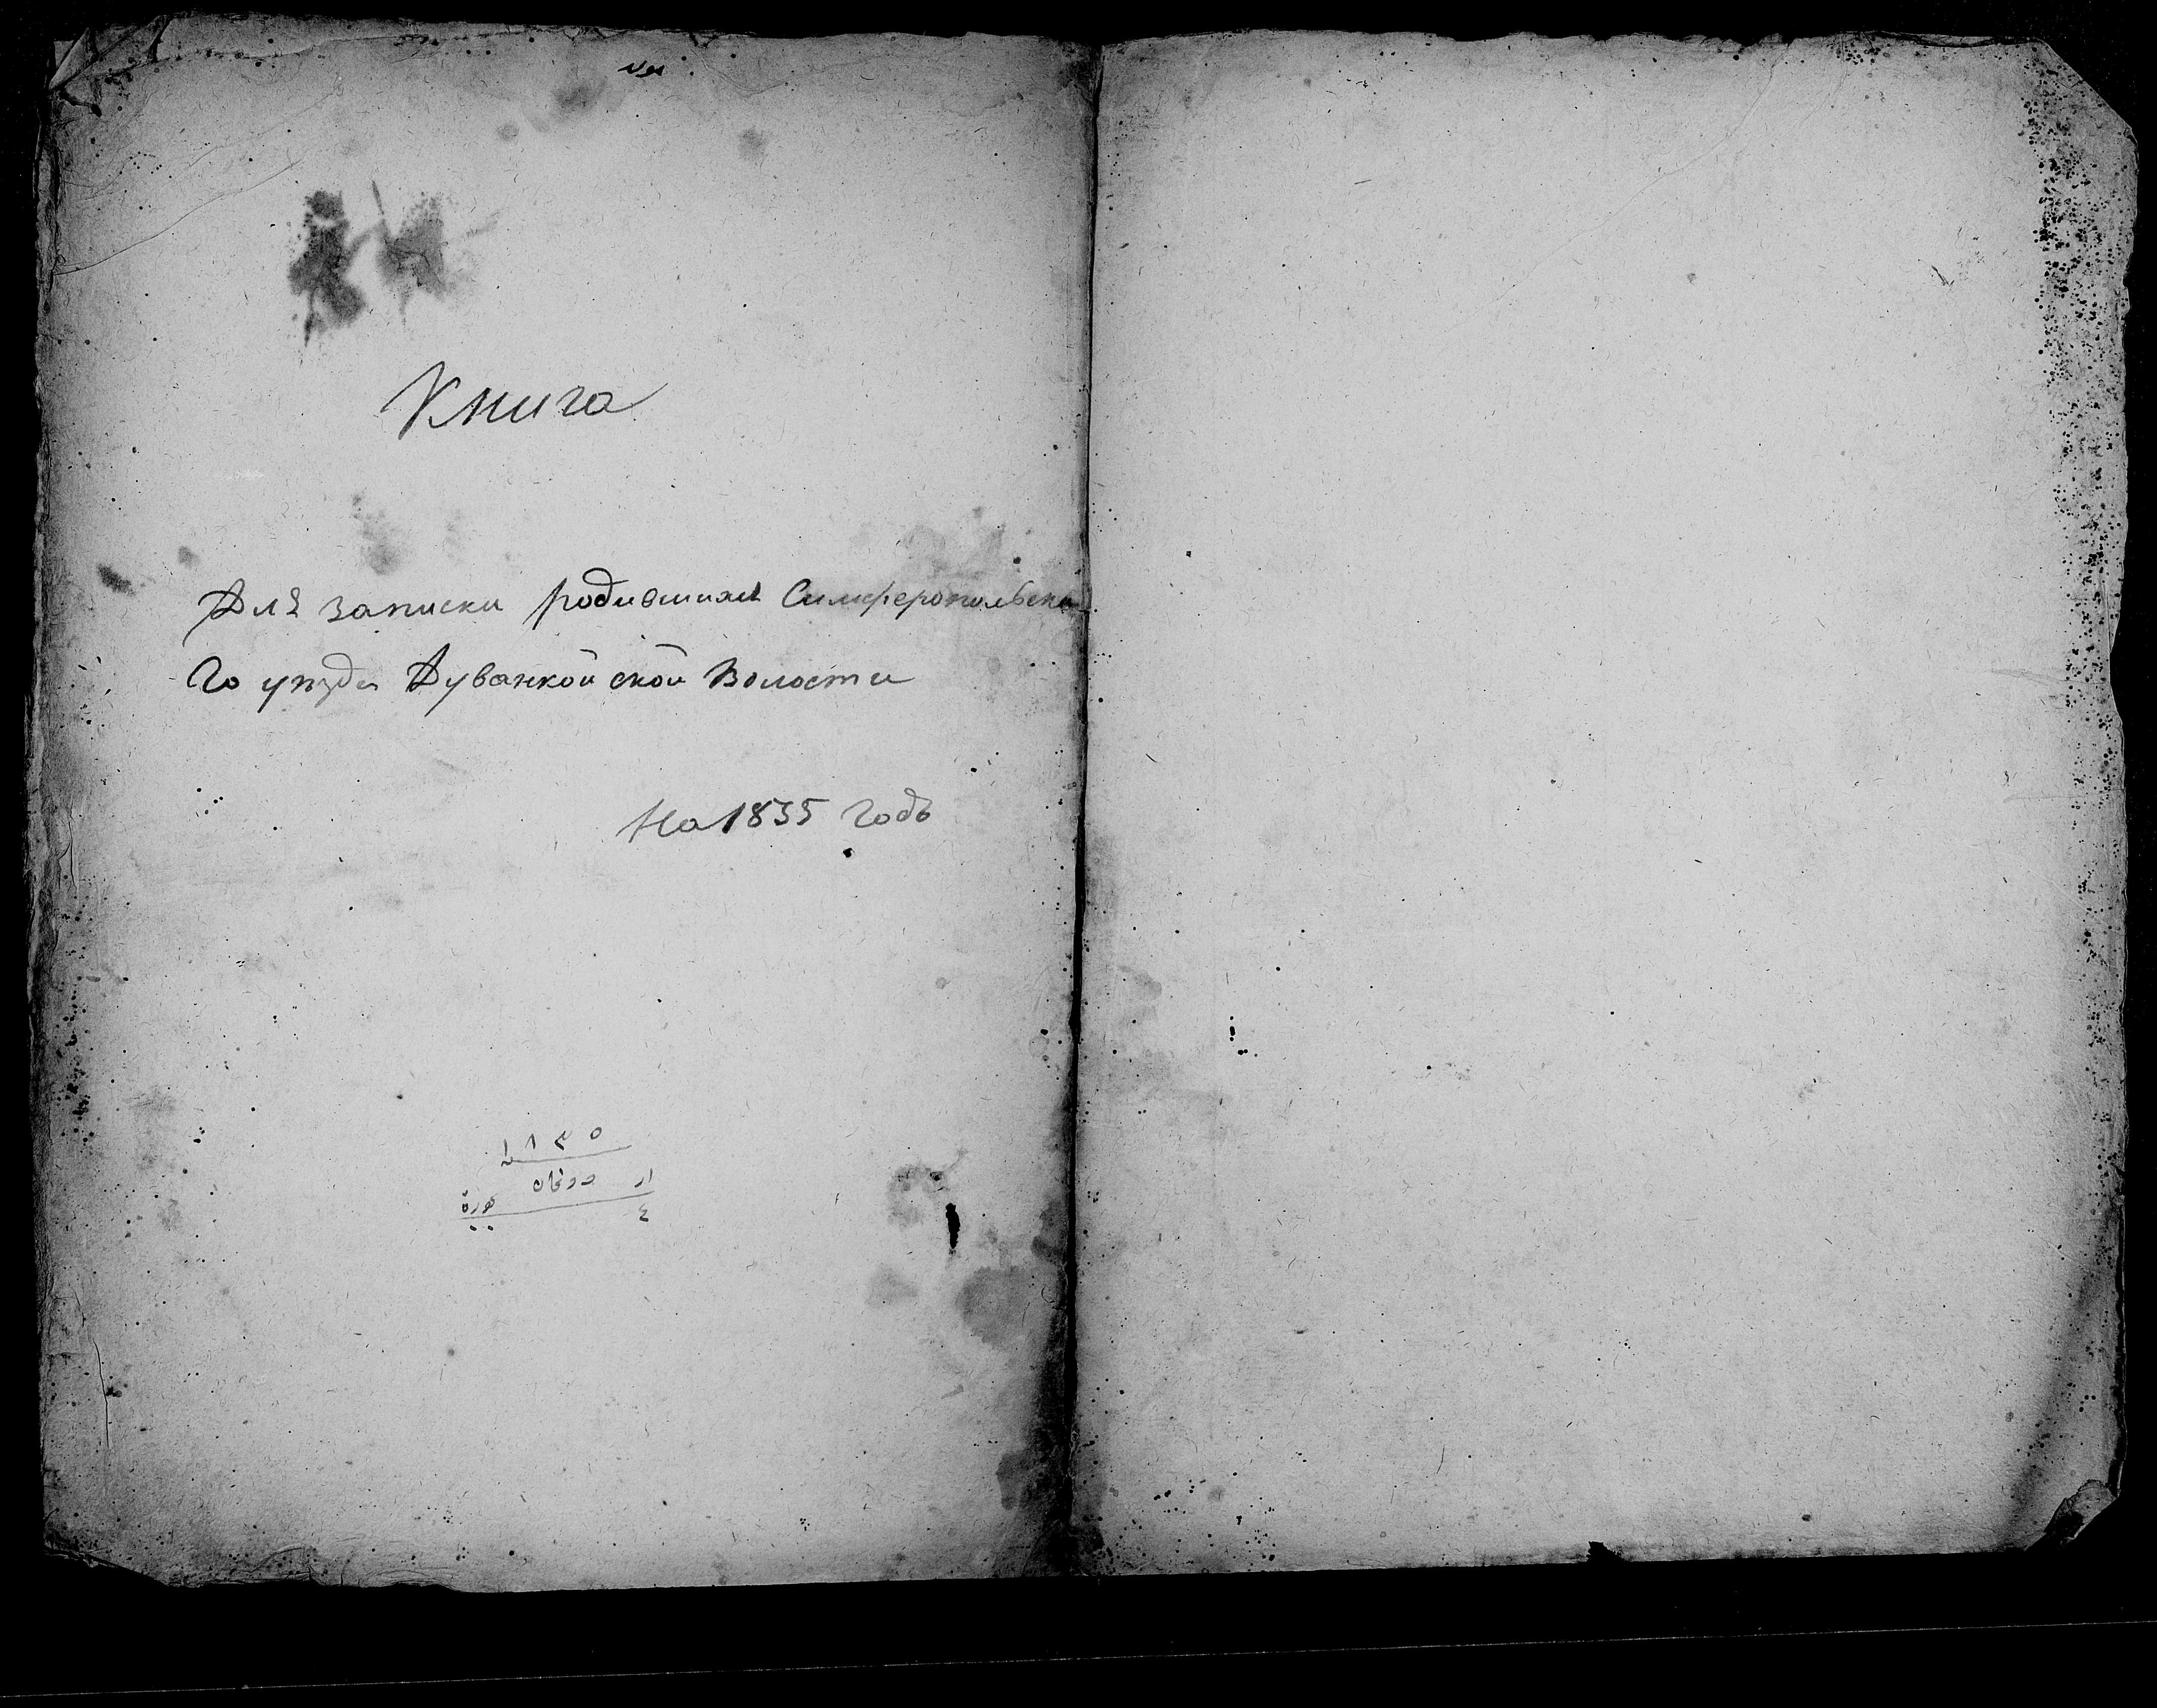 Книга
Для записки родившихся Симферопольска
го уезда Дуванкойской Волости
На 1835 годъ
١٨٣٥